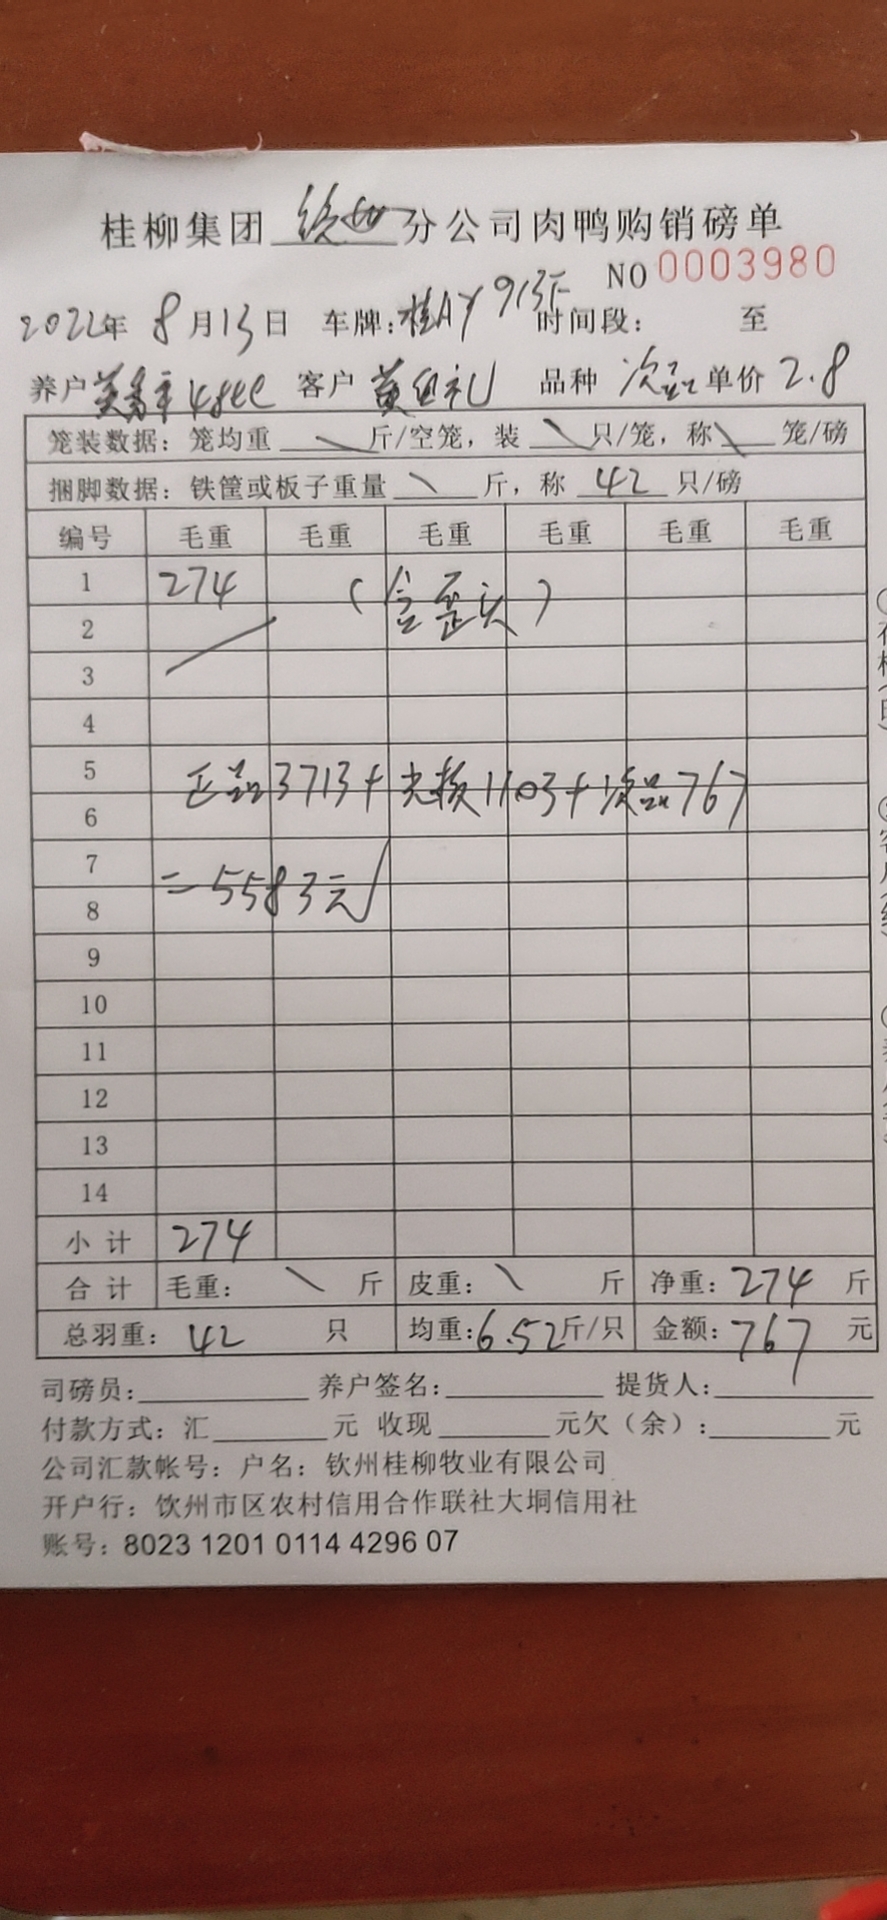 桂柳集团 分公司肉鸭购销磅单
NO 0003980
2022年 8月13日 车牌:桂AY913F 时间段: 至
养户 客户 黄 礼 品种 次品 单价 2.8
笼装数据: 笼均重 \ 斤/空笼, 装 \ 只/笼, 称 \ 笼/磅
捆脚数据: 铁筐或板子重量 \ 斤, 称 42 只/磅
编号 毛重 毛重 毛重 毛重 毛重 毛重
1 274 (含歪头)
2
3
4
5 正品3713+ 1103+次品767
6
7 =5583元
8
9
10
11
12
13
14
小计 274
合计 毛重: \ 斤 皮重: \ 斤 净重: 274 斤
总羽重: 42 只 均重:6.52斤/只 金额:767 元
司磅员: 养户签名: 提货人:
付款方式: 汇 元 收现 元欠(余): 元
公司汇款帐号: 户名: 钦州桂柳牧业有限公司
开户行: 饮州市区农村信用合作联社大垌信用社
账号: 8023 1201 0114 4296 07